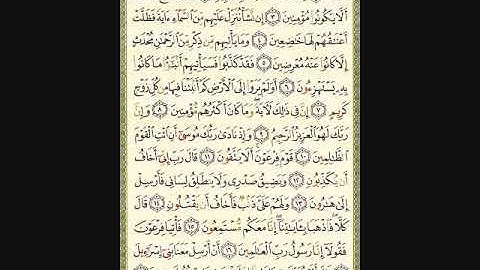 أَلَّا يَكُونُوا۟ مُؤْمِنِينَ ٣ إِن نَّشَأْ نُنَزِّلْ عَلَيْهِم مِّنَ ٱلسَّمَآءِ ءَايَةً فَظَلَّتْ
أَعْنَٰقُهُمْ لَهَا خَٰضِعِينَ ٤ وَمَا يَأْتِيهِم مِّن ذِكْرٍ مِّنَ ٱلرَّحْمَٰنِ مُحْدَثٍ
إِلَّا كَانُوا۟ عَنْهُ مُعْرِضِينَ ٥ فَقَدْ كَذَّبُوا۟ فَسَيَأْتِيهِمْ أَنۢبَٰٓؤُا۟ مَا كَانُوا۟
بِهِۦ يَسْتَهْزِءُونَ ٦ أَوَلَمْ يَرَوْا۟ إِلَى ٱلْأَرْضِ كَمْ أَنۢبَتْنَا فِيهَا مِن كُلِّ زَوْجٍ
كَرِيمٍ ٧ إِنَّ فِى ذَٰلِكَ لَءَايَةً وَمَا كَانَ أَكْثَرُهُم مُّؤْمِنِينَ ٨ وَإِنَّ
رَبَّكَ لَهُوَ ٱلْعَزِيزُ ٱلرَّحِيمُ ٩ وَإِذْ نَادَىٰ رَبُّكَ مُوسَىٰٓ أَنِ ٱئْتِ ٱلْقَوْمَ
ٱلظَّٰلِمِينَ ١٠ قَوْمَ فِرْعَوْنَ أَلَا يَتَّقُونَ ١١ قَالَ رَبِّ إِنِّىٓ أَخَافُ
أَن يُكَذِّبُونِ ١٢ وَيَضِيقُ صَدْرِى وَلَا يَنطَلِقُ لِسَانِى فَأَرْسِلْ
إِلَىٰ هَٰرُونَ ١٣ وَلَهُمْ عَلَىَّ ذَنۢبٌ فَأَخَافُ أَن يَقْتُلُونِ ١٤ قَالَ
كَلَّا فَٱذْهَبَا بِـَٔايَٰتِنَآ إِنَّا مَعَكُم مُّسْتَمِعُونَ ١٥ فَأْتِيَا فِرْعَوْنَ
فَقُولَآ إِنَّا رَسُولُ رَبِّ ٱلْعَٰلَمِينَ ١٦ أَنْ أَرْسِلْ مَعَنَا بَنِىٓ إِسْرَٰٓءِيلَ